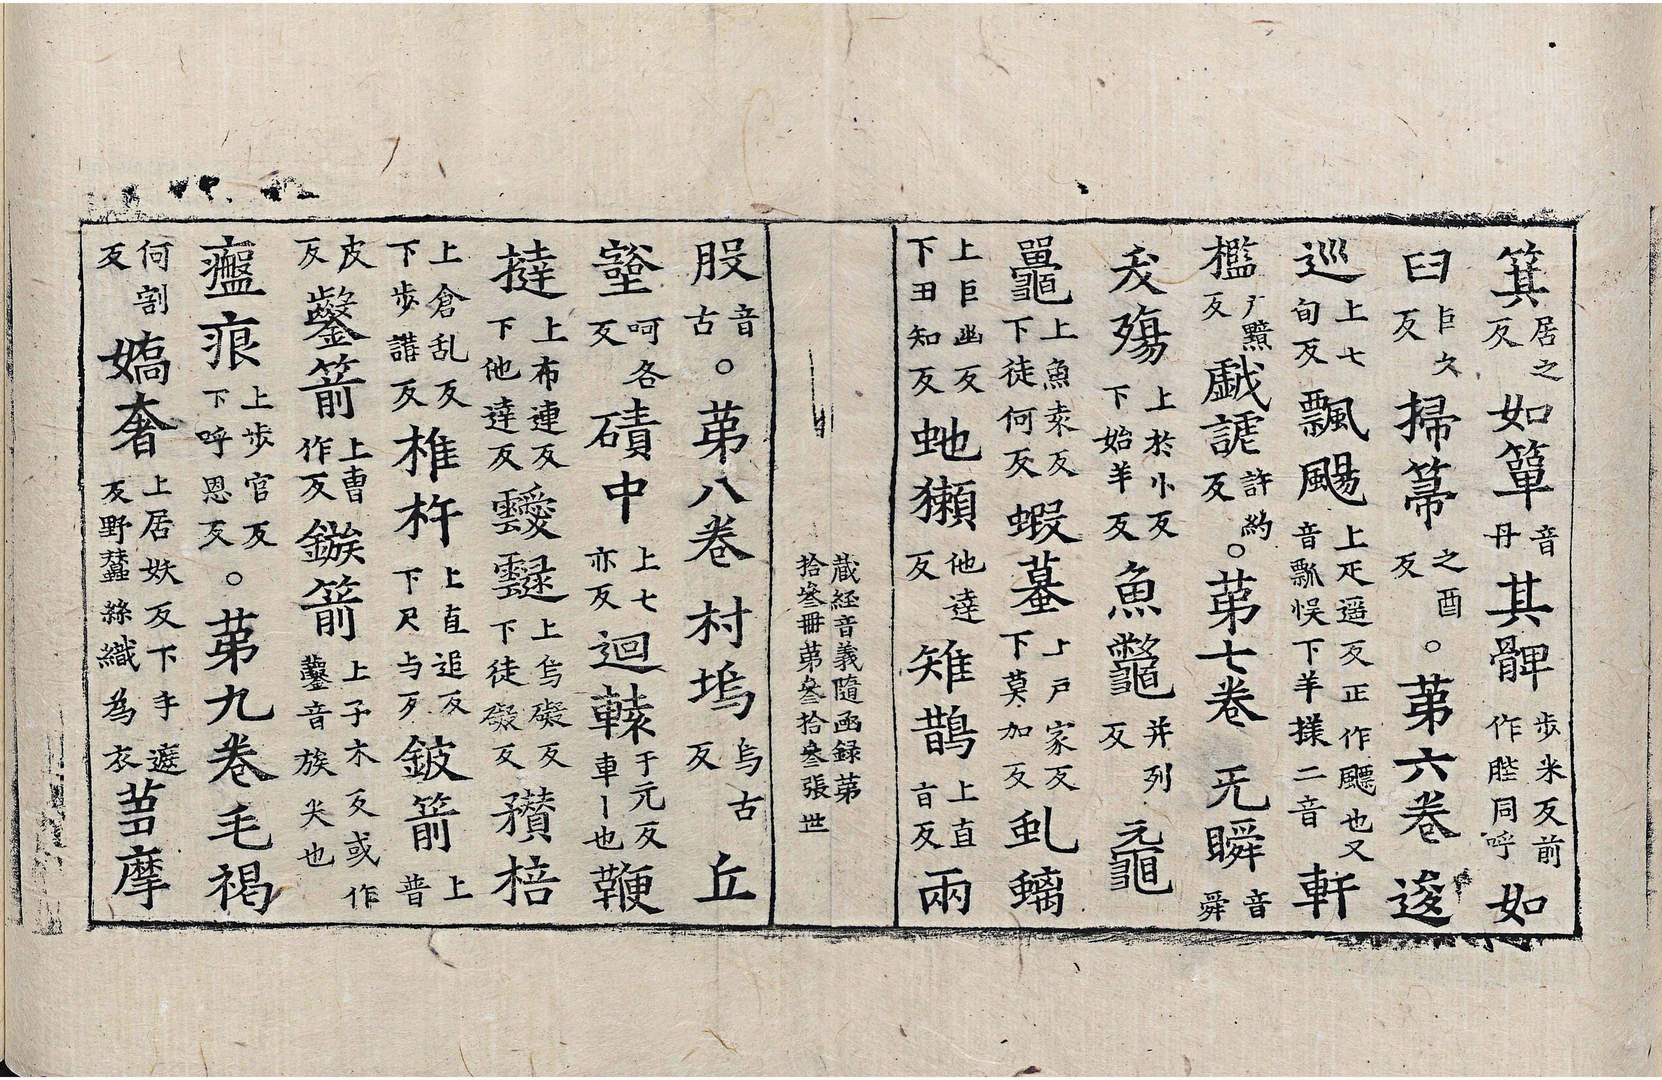 箕居之反如簞音丹其髀步米反前作䏶同呼如
臼巨久反掃箒之酉反。苐六卷逡
巡上七旬反飄颺上疋遥反正作飃也又音瓢悞下羊㨾二音軒
檻户黤反戯謔許約反。苐七卷旡瞬音舜
夭殤上於小反下始羊反魚鼈并列反黿
鼉上魚袁反下徒何反蝦蟇上户家反下莫加反虬螭
上巨幽反下丑知反虵獺他達反雉鵲上直旨反兩
藏経音義隨函録苐
拾叄冊苐叄拾叄張世
股音古。苐八卷村塢烏古反丘
壑呵各反磧中上七亦反迴轅于元反車丨也鞭
撻上布連反下他達反靉靆上烏礙反下徒礙反穳棓
上倉乱反下步講反椎杵上直追反下尺与反鈹箭上普
皮反鑿箭上曺作反鏃箭上子木反或作鑿音族尖也
瘢痕上步官反下呼恩反。苐九卷毛褐
何割反嬌奢上居妖反下手遮反野蠶絲織為衣蒭摩